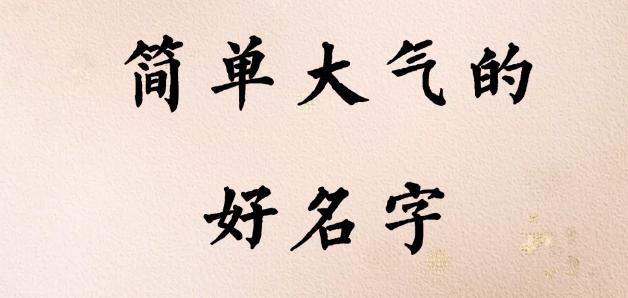 简单大气的
好名字